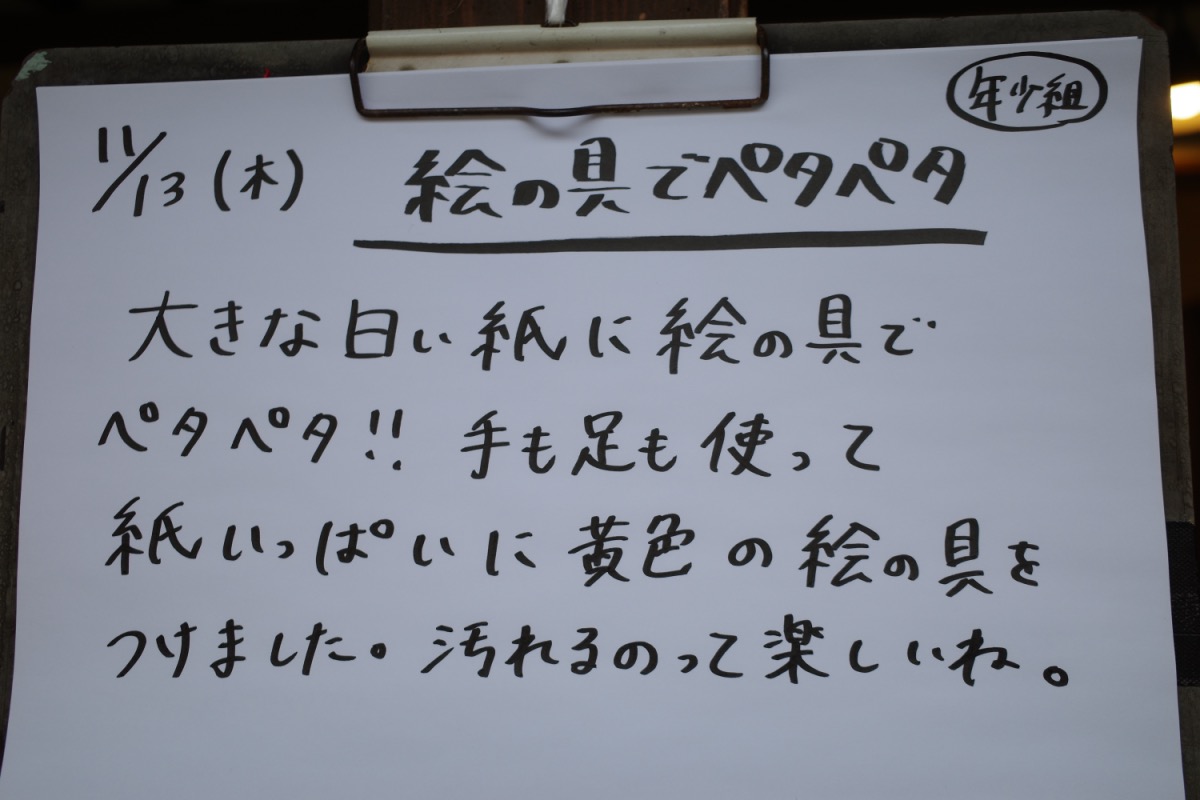 年少組
11/13(木) 絵の具でペタペタ
大きな白い紙に絵の具で
ペタペタ!! 手も足も使って
紙いっぱいに黄色の絵の具を
つけました。汚れるのって楽しいね。